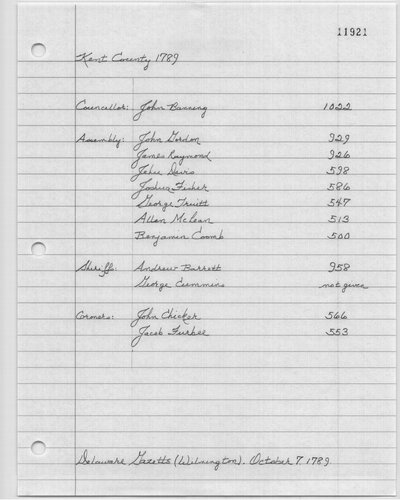 11921
Kent County 1789
Councillor: John Banning 1022
Assembly: John Gordon 929
James Raymond 926
Jehu Davis 598
Joshua Fisher 586
George Truitt 547
Allan McLean 513
Benjamin Coomb 500
Sheriffs: Andrew Barrett 958
George Cummins not given
Coroners: John Chicken 566
Jacob Furbee 553
Delaware Gazette (Wilmington). October 7 1789.